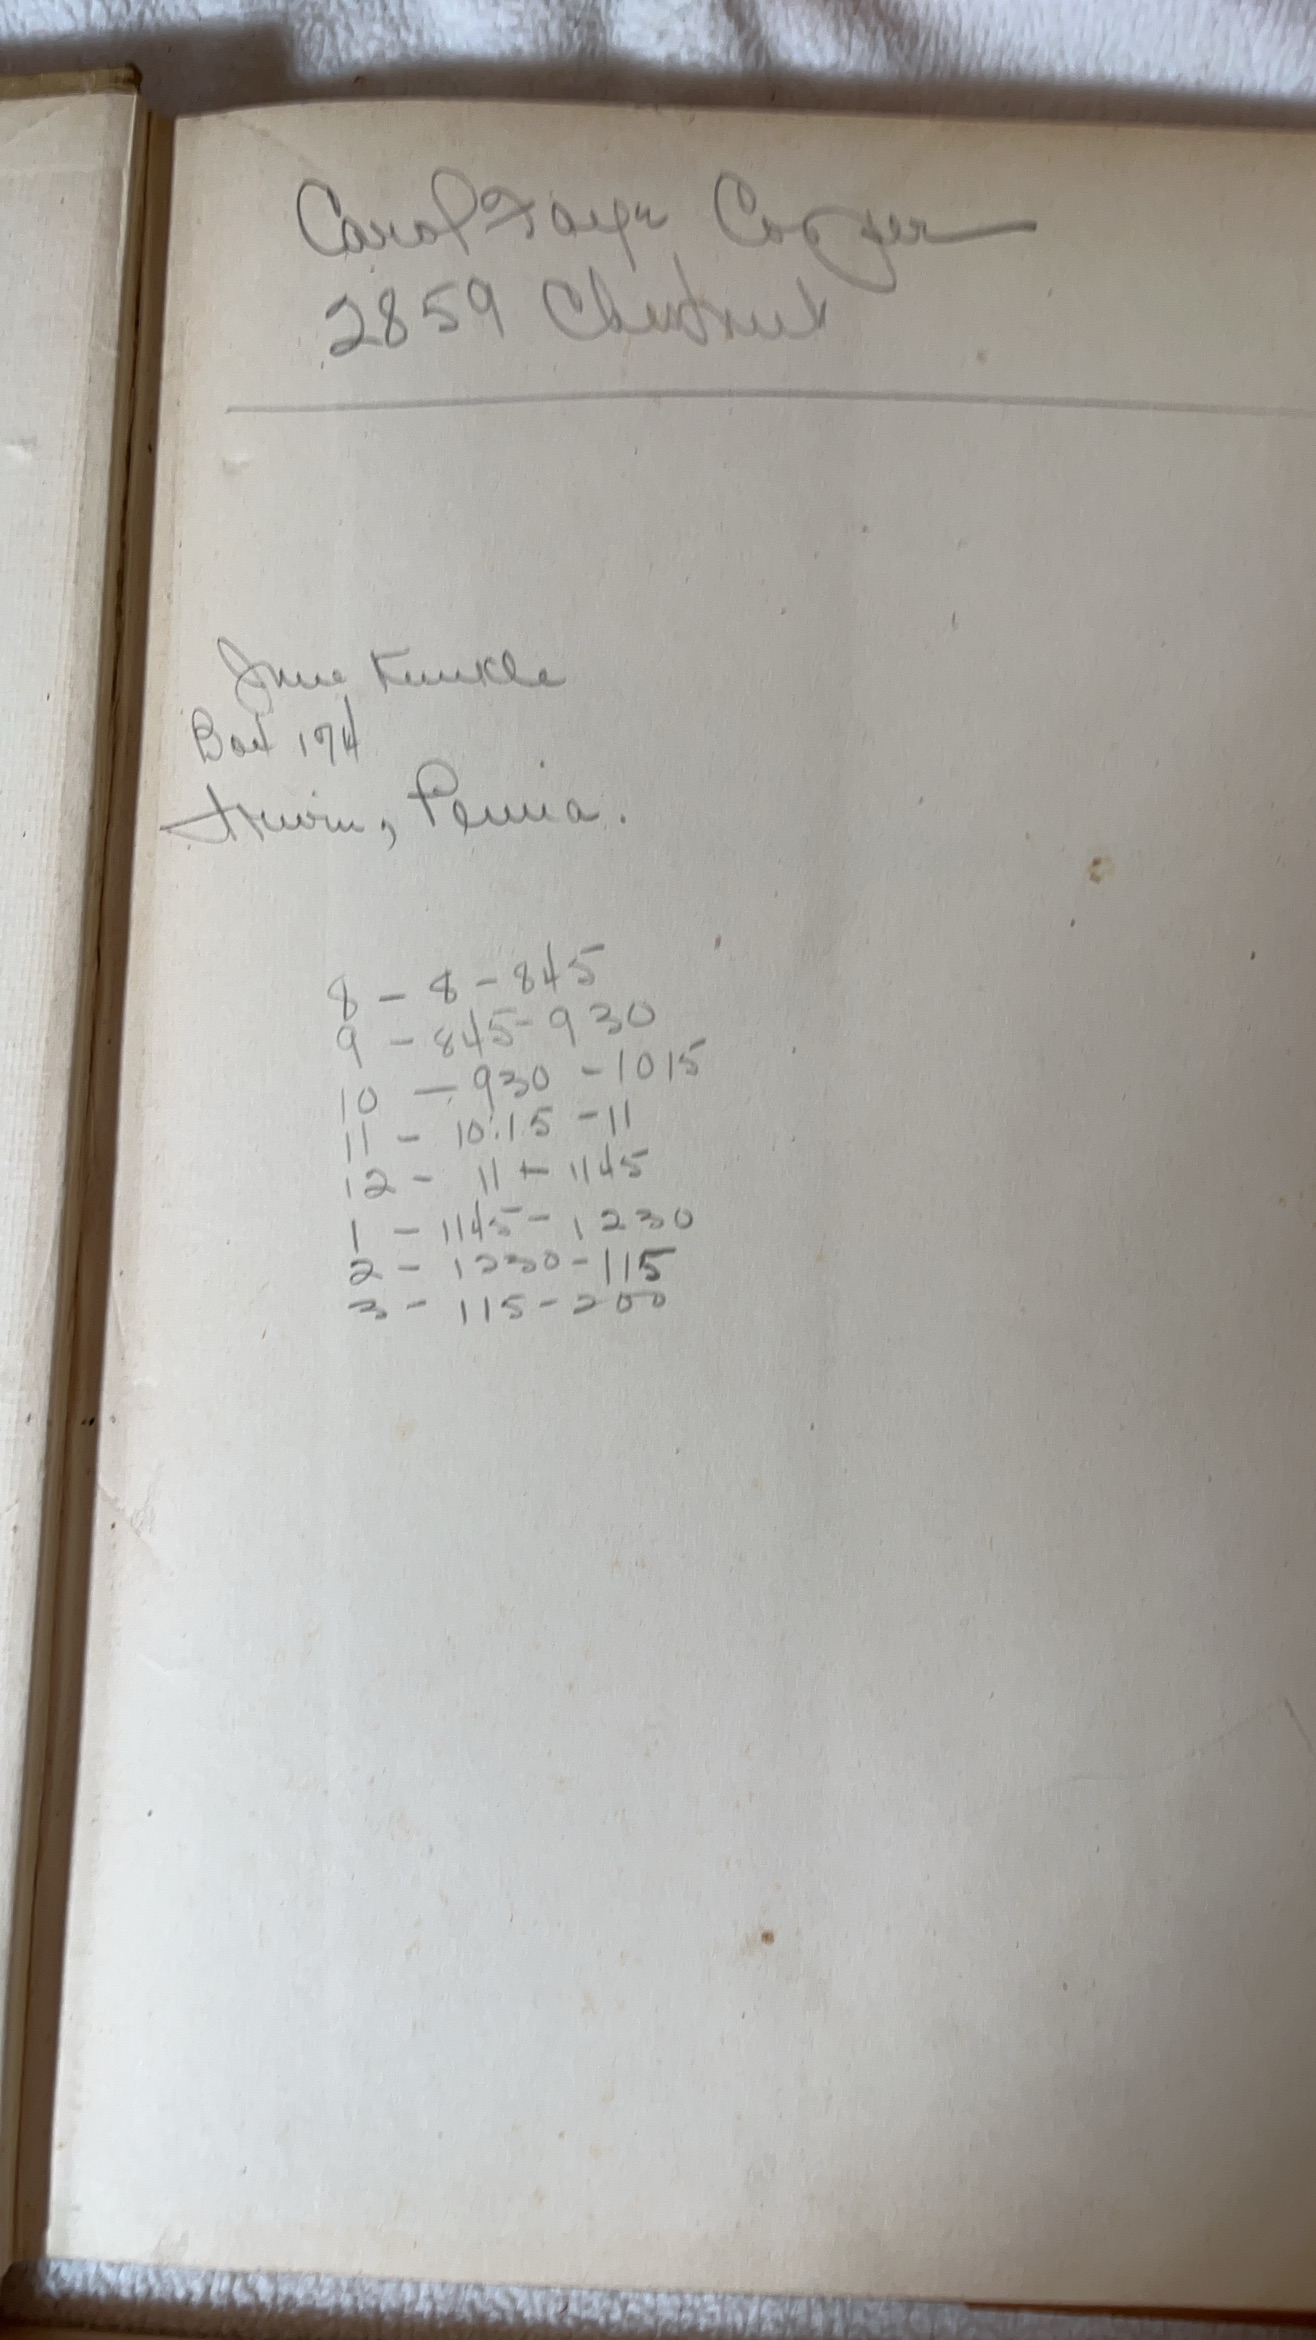 Carol Faye Cooper
2859 Chestnut
Jane Kunkle
Box 174
Irwin, Penna.
8 - 8 - 845
9 - 845 - 930
10 - 930 - 1015
11 - 10:15 - 11
12 - 11 - 1145
1 - 1145 - 1230
2 - 1230 - 115
3 - 115 - 200